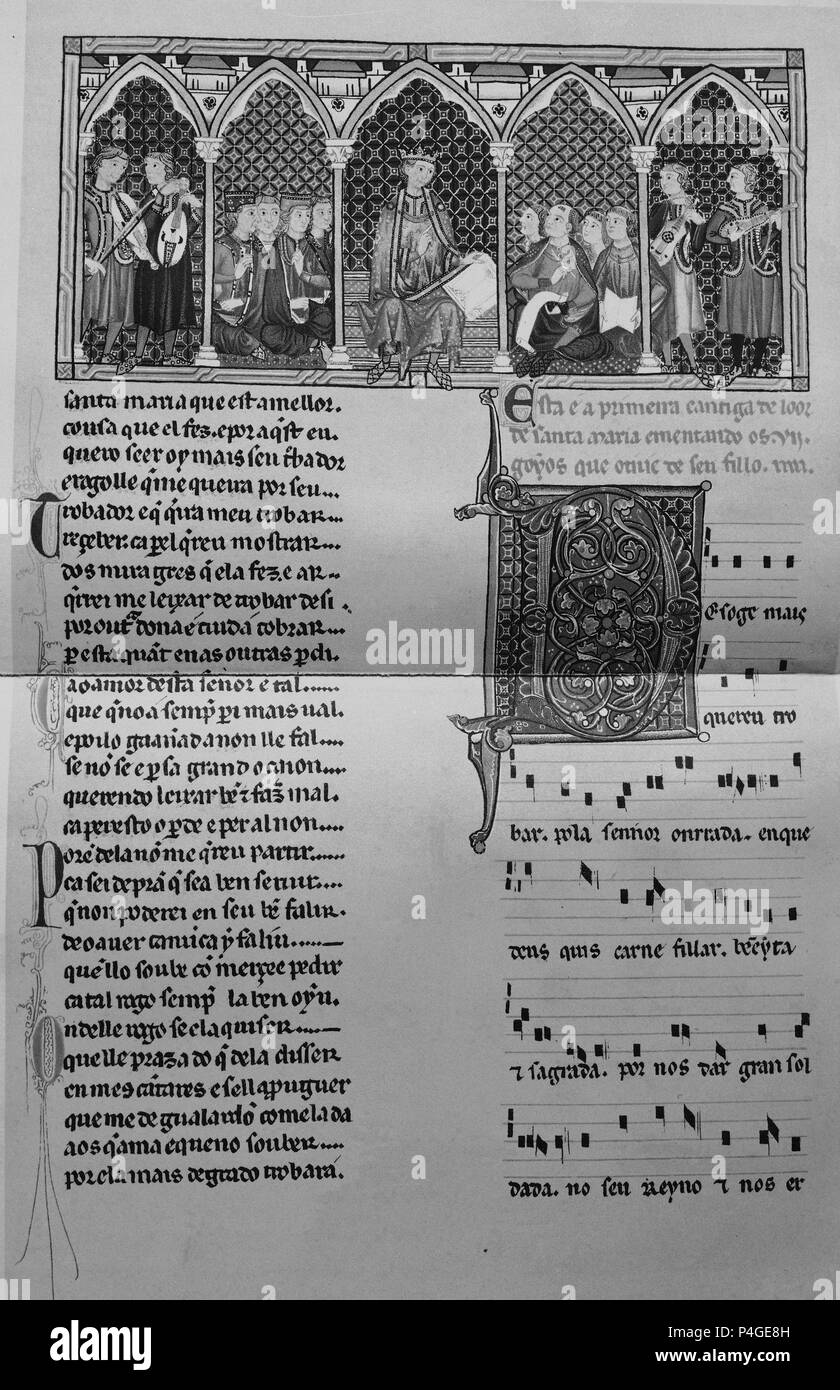 santa maria que est a mellor.
cousa que el fez. e por aqst eu.
quero seer oy mais seu tbador
e rogolle q̄ me queira por seu...
Trobador e q̄ q̄ira meu trobar...
reçeber. ca per el q̄reu mostrar...
dos miragres q̄ ela fez. e ar...
q̄rrei me leixar de trobar desi.
por outa dona e cuid a cobrar...
per esta. quāt enas outras pdi.
Ca o amor desta señor e tal......
que q̄no a semp per i mais ual.
e poilo gaañad a non lle fal....
se nō se e p sa grand ocaion...
querendo leixar bē ⁊ fazer mal.
ca per esto o pde e per al non...
Porē dela nō me q̄reu partir.....
ca sei de prā q̄ sea ben seruir....
q̄ non poderei en seu bē falir.
de o auer ca nūca y faliu......
que llo soube cō merçee pedir
ca tal rogo semp la ben oyu.
Onde lle rogo se ela quiser.....
que lle praza do q̄ dela disser
en mes cātares e se ll aprouguer
que me de gualardō com ela da
aos q̄ ama e queno souber.....
por ela mais de grado trobara.
Esta e a primeira cantiga de loor
de santa maria ementando os .VII.
goyos que ouue de seu fillo.
Des oge mais
quer eu tro
bar. pola sennor onrrada. en que
deus quis carne fillar. bēeyta
⁊ sagrada. por nos dar gran sol
dada. no seu reyno ⁊ nos er
a
alamy
alamy stock photo
P4GE8H
www.alamy.com